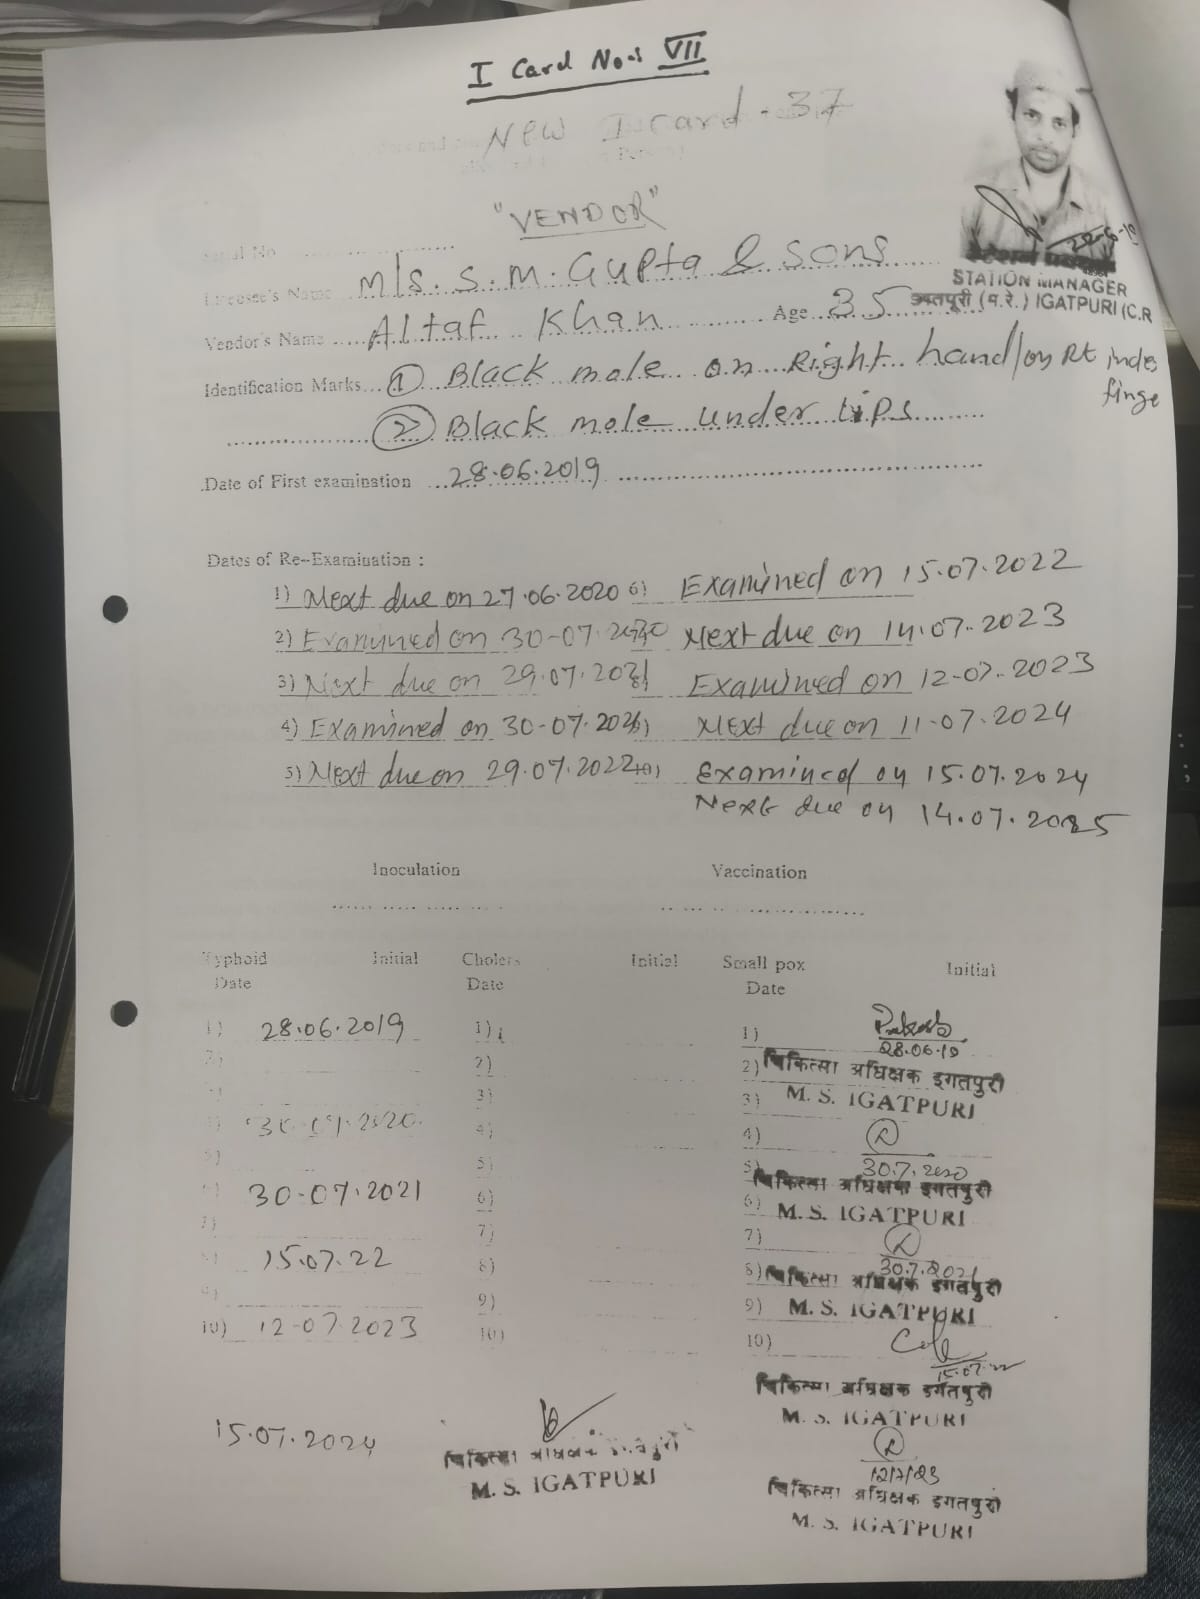 I Card No.: VII
New I card - 37
"VENDOR"
Serial No
22-6-19
STATION MANAGER
इगतपूरी (म.रे.) IGATPURI (C.R
Licensee's Name M/s. S. M. Gupta & Sons
Vendor's Name Altaf Khan Age 35
Identification Marks ① Black mole on Right hand/on Rt index
finge
② Black mole under lips
Date of First examination 28.06.2019
Dates of Re-Examination :
1) Next due on 27.06.2020 6) Examined on 15.07.2022
2) Examined on 30-07-2020 Next due on 14.07.2023
3) Next due on 29.07.2021 Examined on 12-07-2023
4) Examined on 30-07-2021 Next due on 11-07-2024
5) Next due on 29.07.2022 10) Examined on 15.07.2024
Next due on 14.07.2025
Inoculation Vaccination
Typhoid Initial Cholera Initial Small pox Initial
Date Date Date
1) 28.06.2019 1) 1)
28.06.19
2) 2) चिकित्सा अधिक्षक इगतपुरी
3) 3) M. S. IGATPURI
30-07-2020 4) 4)
5) 5) 30.7.2020
चिकित्सा अधिक्षक इगतपुरी
30-07-2021 6) 6) M. S. IGATPURI
7) 7) 7)
15.07.22 8) 8) 30.7.2021
चिकित्सा अधिक्षक इगतपुरी
9) 9) M. S. IGATPURI
10) 12-07-2023 10) 10)
15.07.22
चिकित्सा अधिक्षक इगतपुरी
M. S. IGATPURI
15.07.2024
चिकित्सा अधिक्षक इगतपुरी
M. S. IGATPURI
12/7/23
चिकित्सा अधिक्षक इगतपुरी
M. S. IGATPURI